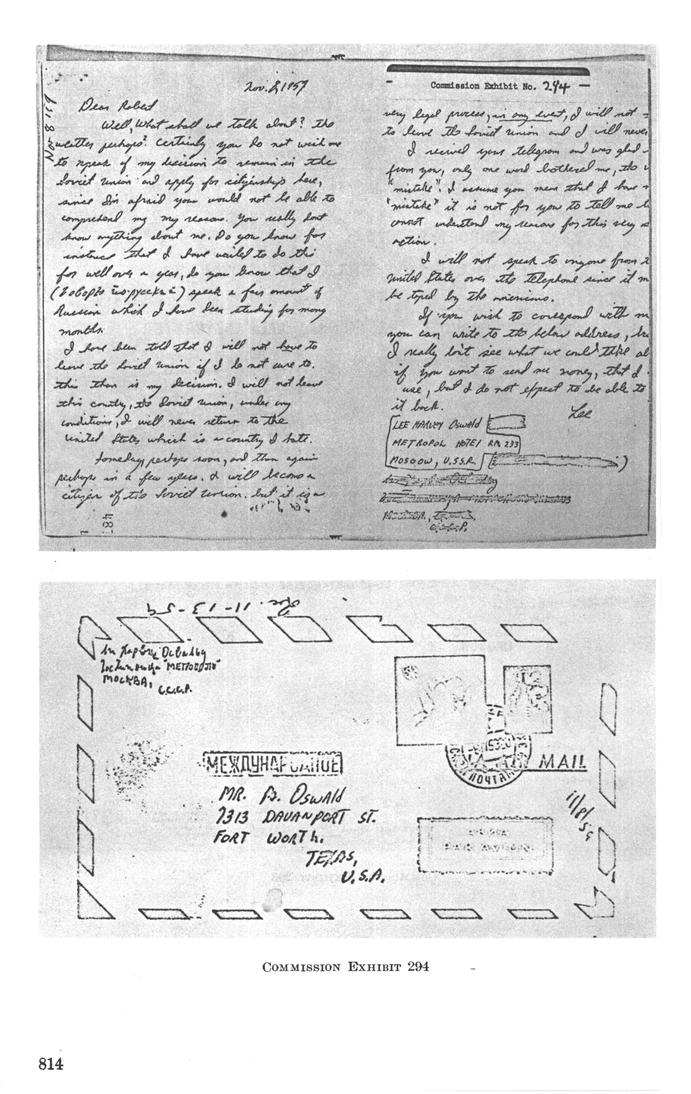 Commission Exhibit No. 294
Nov. 8, 1959
Nov 8 1959
Dear Robert
Well, What shall we talk about? the
weather perhaps? Certainly you do not wish me
to speak of my decision to remain in the
Soviet Union and apply for citizenship here,
since I'm afraid you would not be able to
comprehend my my reasons. You really don't
know anything about me. Do you know for
instance that I have waited to do this
for well over a year, do you know that I
( speak a fair amount of
Russian which I have been studing for many
months
I have been told that I will not have to
leave the Soviet Union if I do not care to.
this than is my decision. I will not leave
this country, the Soviet Union, under any
conditions, I will never return to the
United States which is a country I hate.
Someday perhaps soon, and than again
perhaps in a few years, I will become a
citizen of the Soviet Union. but it is a
very legal process, in any event, I will not
to leave the Soviet Union and I will never
I recived your telegram and was glad
from you, only one word bothered me, the
"mistake". I assume you mean that I have
"mistake" it is not for you to tell me
cannot understand my reasons for this very
action.
I will not speak to anyone from
United States over the telephone since it m
be taped by the
If you wish to corespond with m
you can write to the below address,
I really don't see what we could take
if you want to send me money, that I
use, but I do not expect to be able to
it back.
Lee
LEE HARVEY Oswald
METROPOL HOTEl RM 233
MOSCOW, U.S.S.R.
Rec. 11-13-59
"МЕТРОПОЛЬ"
МОСКВА,
С.С.С.Р.
МЕЖДУНАРОДНОЕ
MAIL
ПОЧТАМТ
MR. R. OSwAld
7313 DAVANPORT ST.
FORT WORTh.
TEXAS,
U.S.A.
11/8/59
Commission Exhibit 294
814